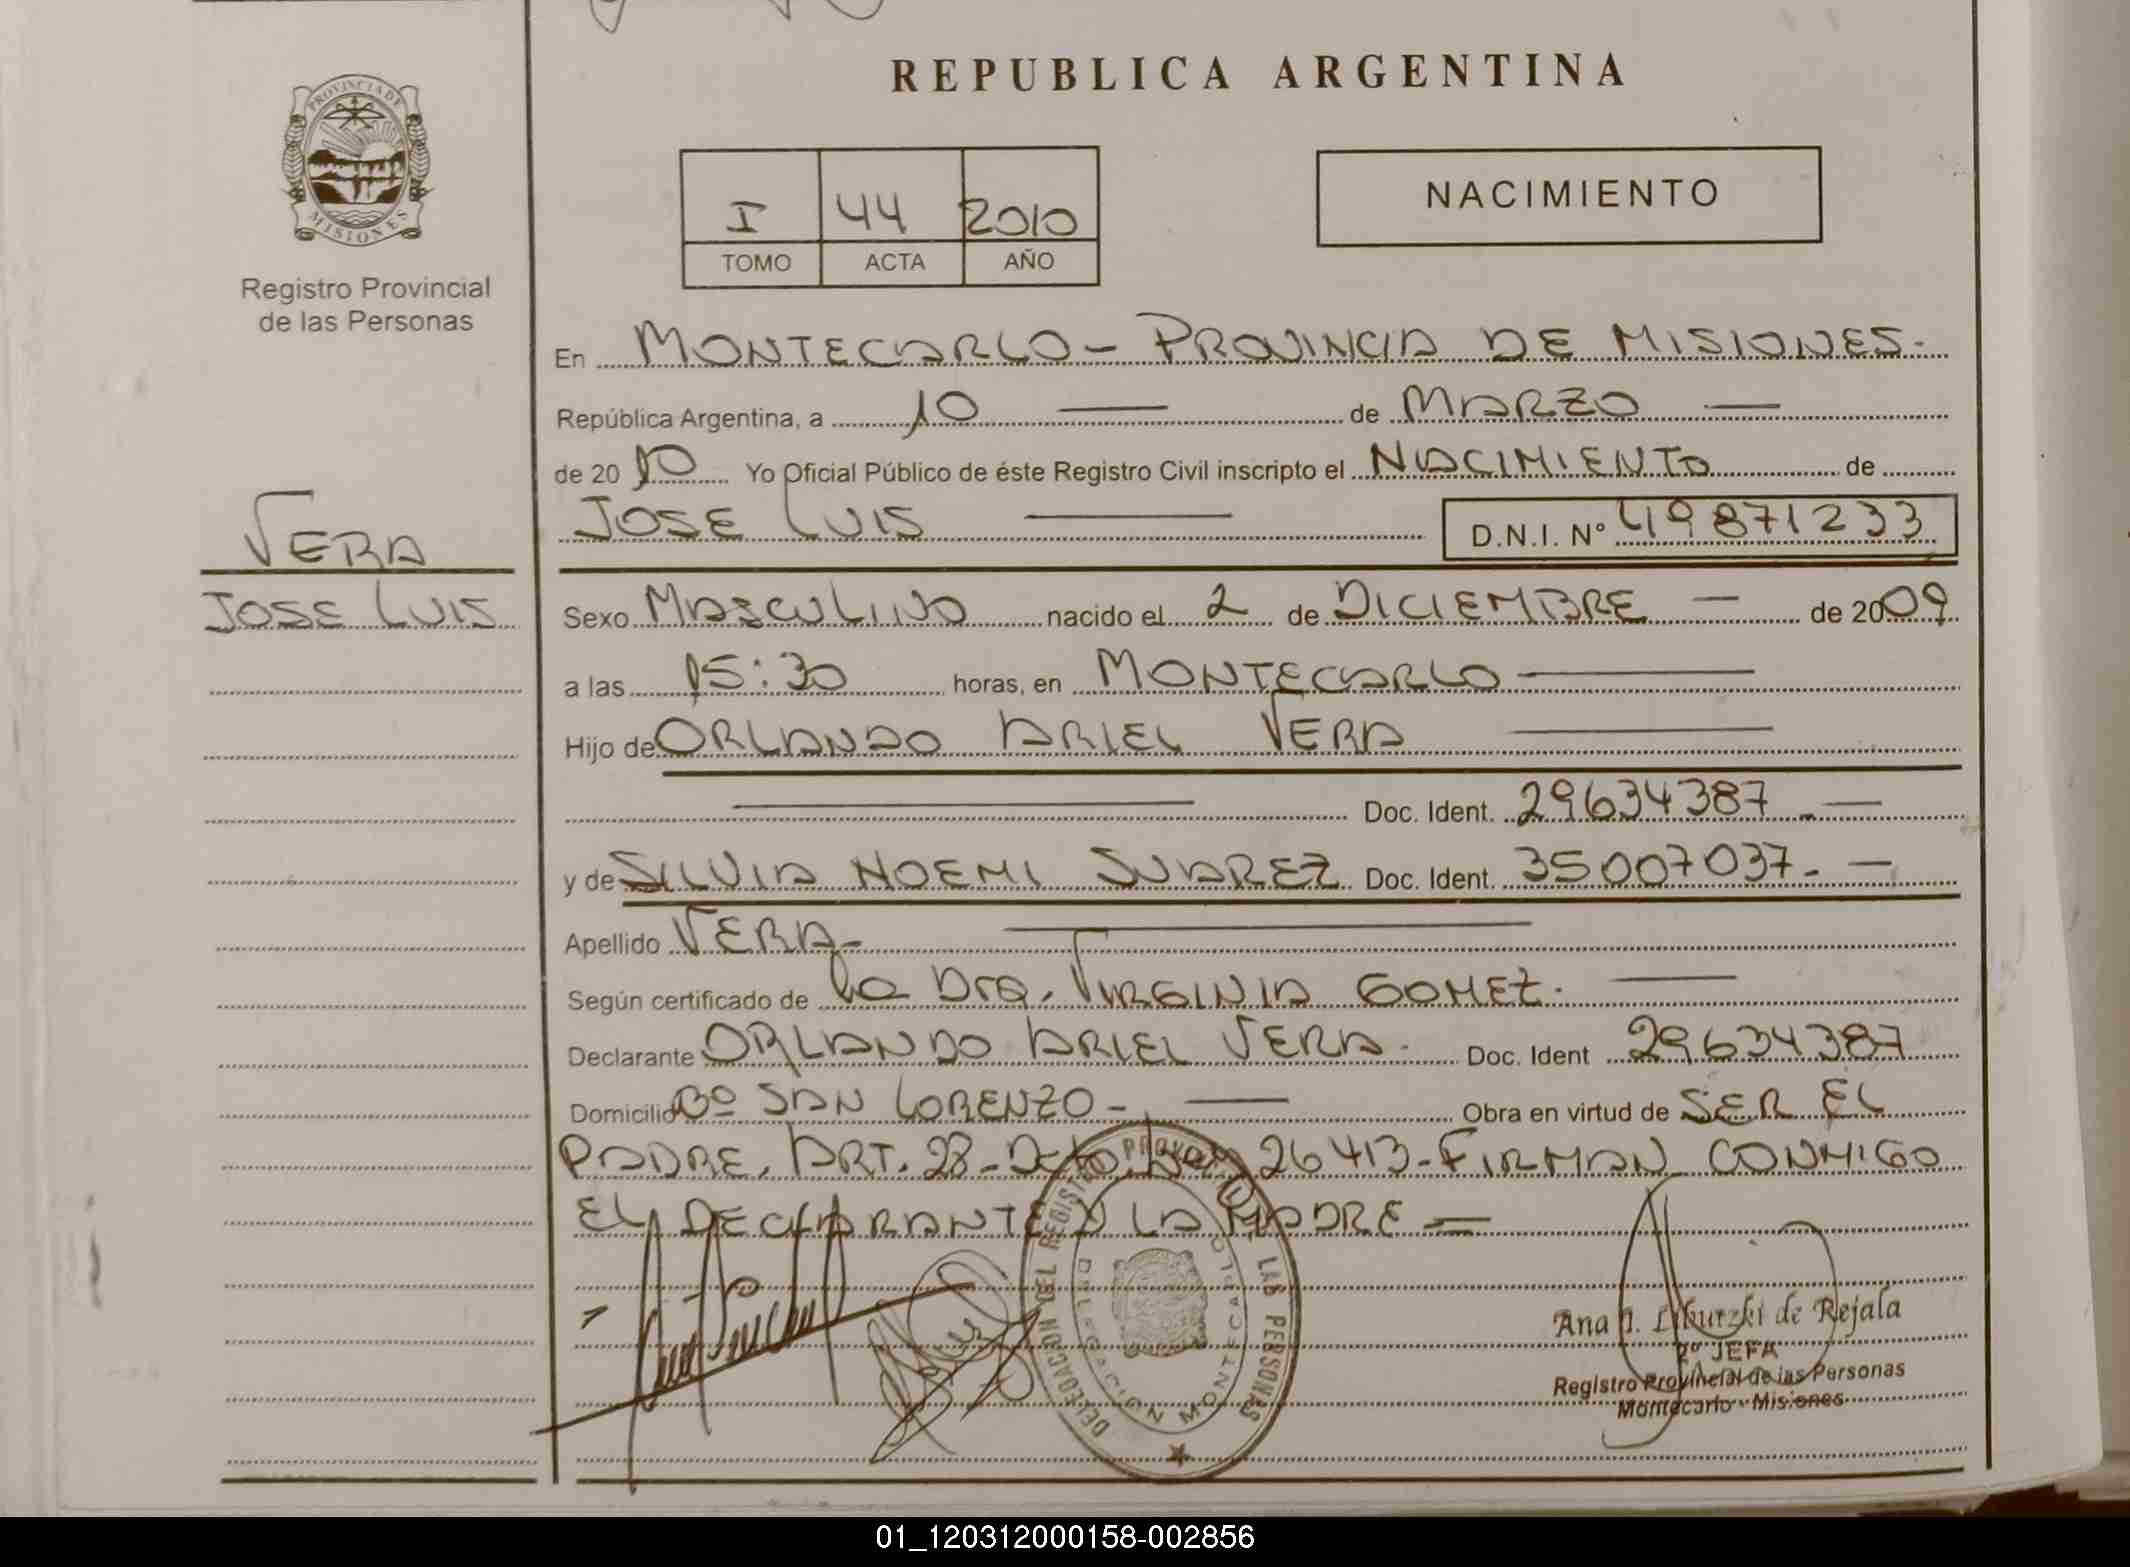 REPUBLICA ARGENTINA
PROVINCIA DE
MISIONES
Registro Provincial
de las Personas
I 44 2010
TOMO ACTA AÑO
NACIMIENTO
En MONTECARLO - PROVINCIA DE MISIONES.
República Argentina, a 10 — de MARZO —
de 2010 Yo Oficial Público de éste Registro Civil inscripto el NACIMIENTO de
JOSE LUIS — D.N.I. Nº 49871233
VERA
JOSE LUIS
Sexo MASCULINO nacido el 2 de DICIEMBRE — de 2009
a las 15:30 horas, en MONTECARLO —
Hijo de ORLANDO ARIEL VERA —
— Doc. Ident. 29634387.—
y de SILVIA NOEMI SUAREZ Doc. Ident. 35007037.—
Apellido VERA- —
Según certificado de la Dra. VIRGINIA GOMEZ. —
Declarante ORLANDO ARIEL VERA. Doc. Ident 29634387
Domicilio Bº SAN LORENZO - — Obra en virtud de SER EL
PADRE. ART. 28- 26413-FIRMAN CONMIGO
EL DECLARANTE Y LA MADRE =
DELEGACION DEL REGISTRO PROVINCIAL DE LAS PERSONAS
DELEGACION MONTECARLO
Ana Liburzki de Rejala
2º JEFA
Registro Provincial de las Personas
Montecarlo - Misiones
01_120312000158-002856